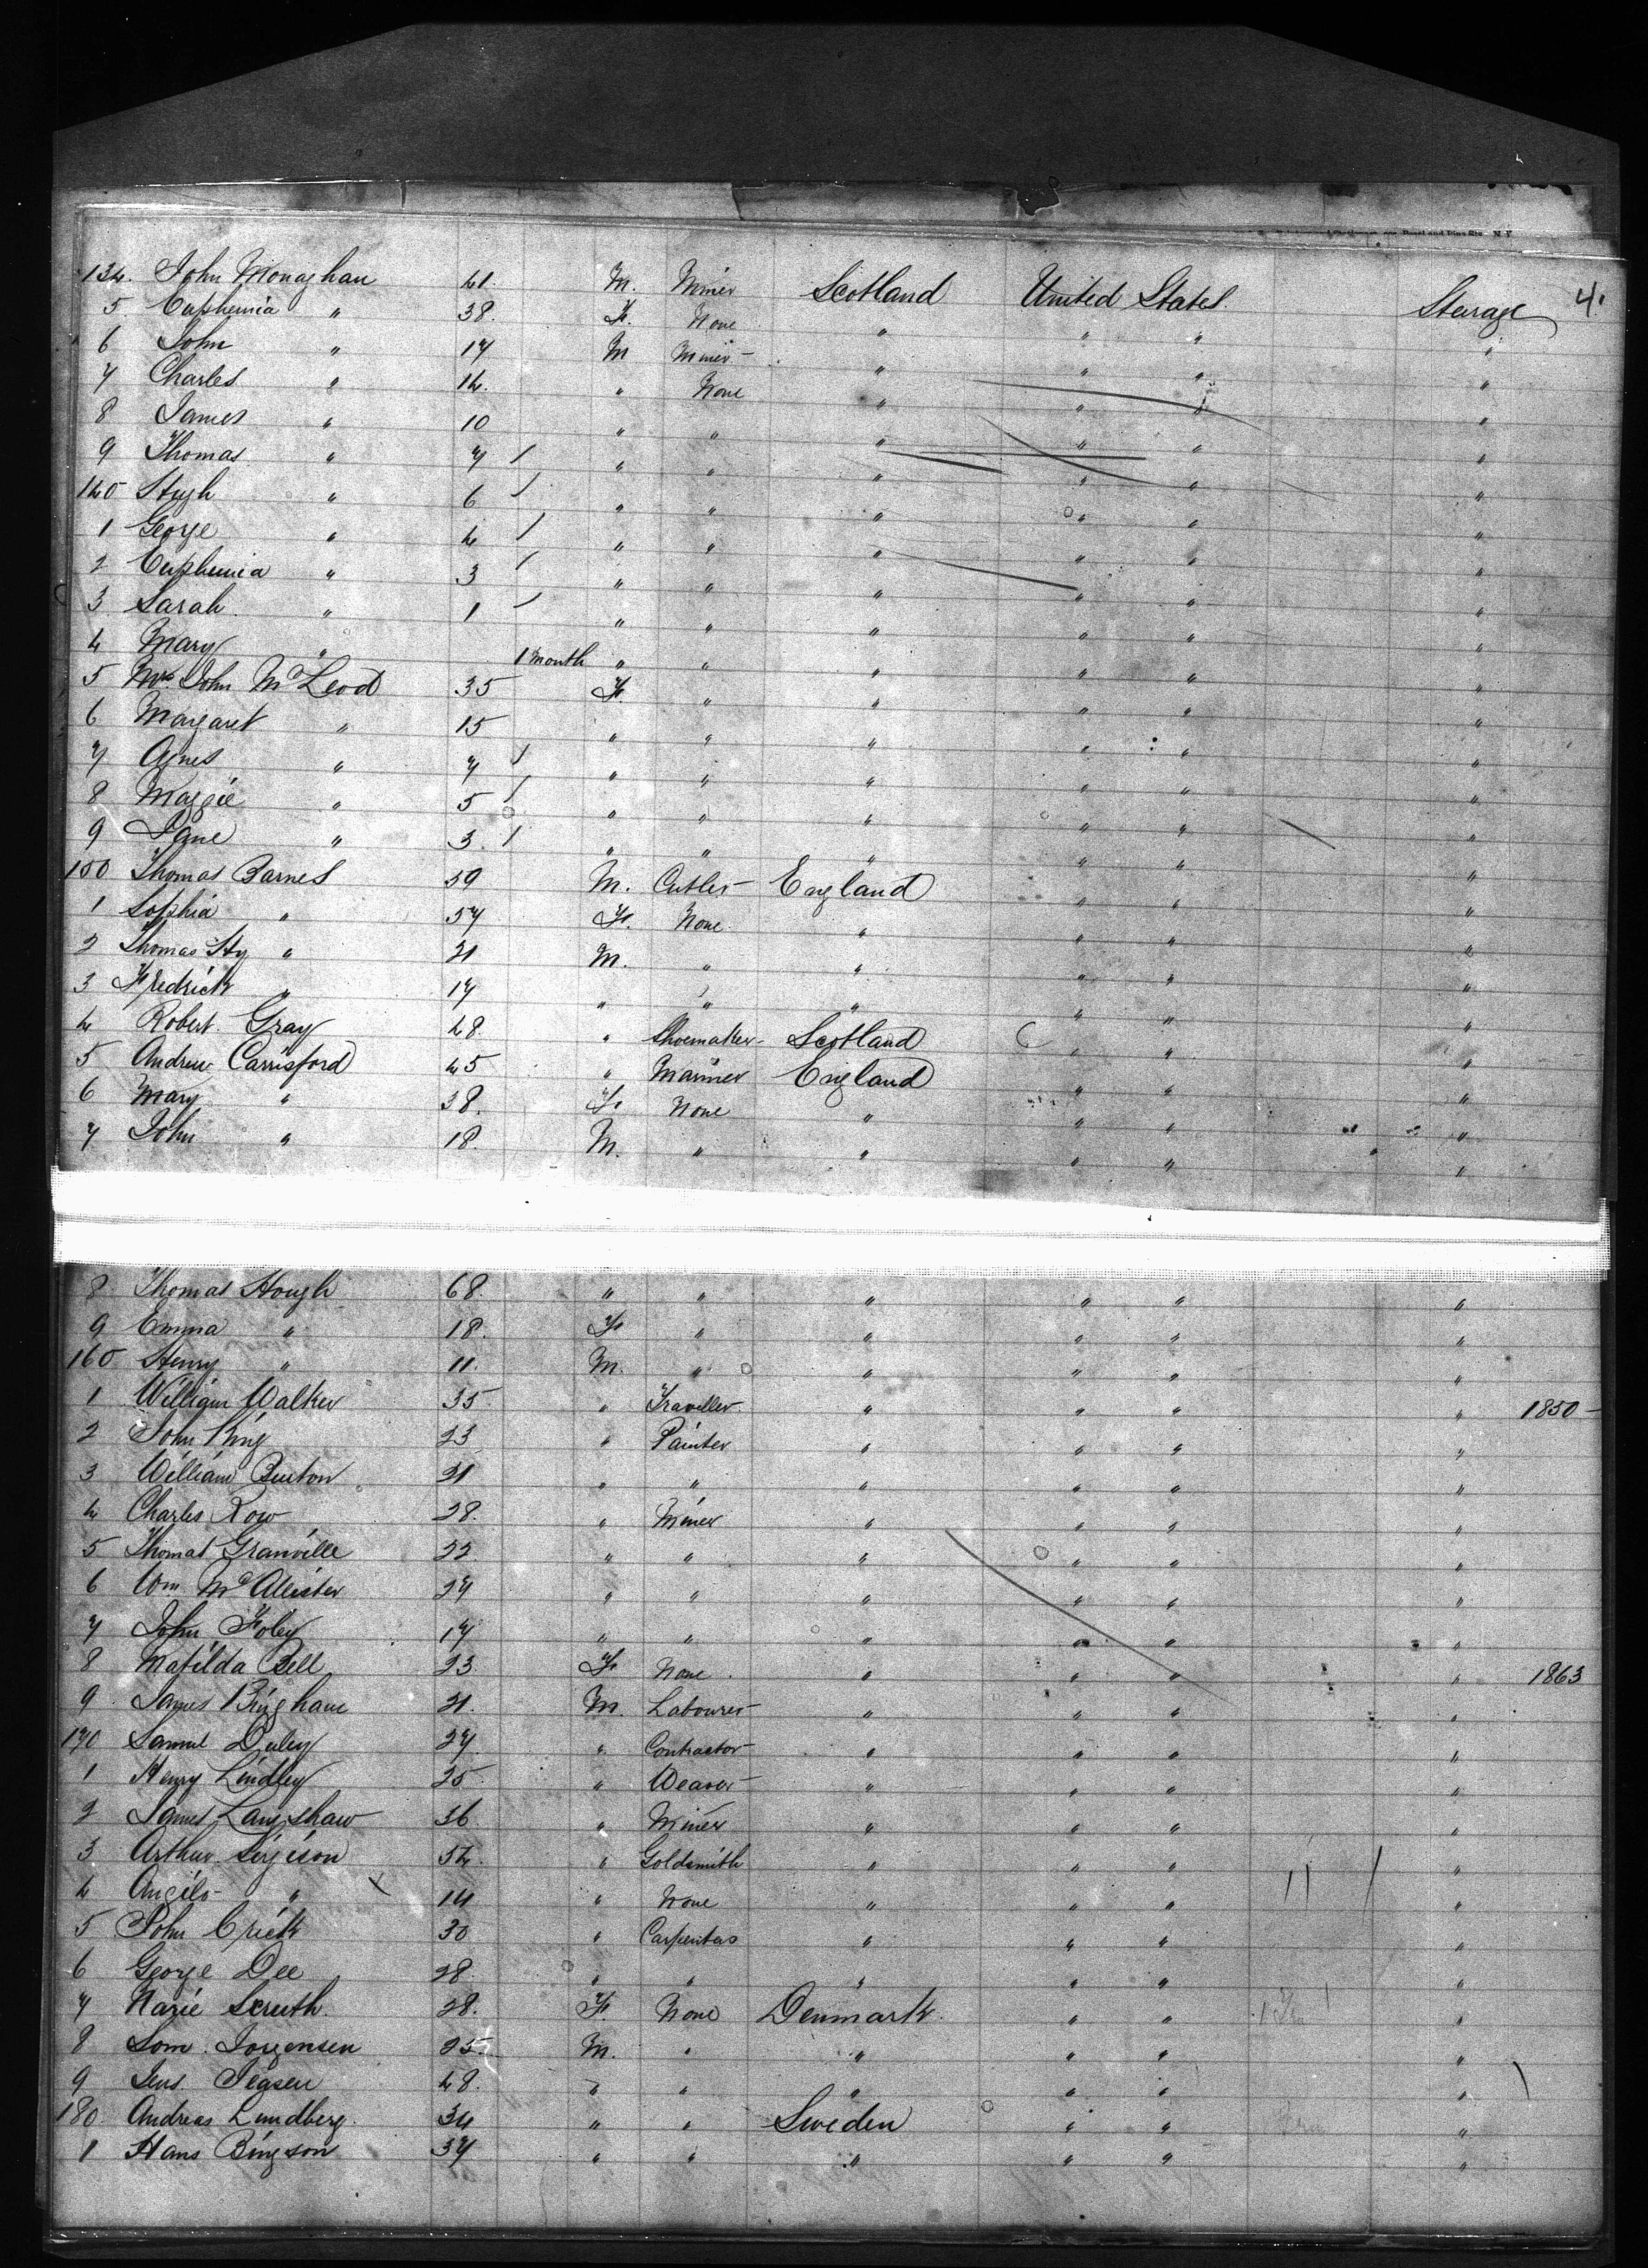 4.
134. John Monaghan 41. M. Miner Scotland United States Steerage
5. Euphemia " 38. F. None " " " "
6 John " 17 M Miner " " " "
7 Charles " 14. " None " " " "
8 James " 10 " " " " " "
9 Thomas " 7 / " " " " " "
140 Hugh " 6 / " " " " " "
1 George " 4 / " " " " " "
2 Euphemia " 3 / " " " " " "
3 Sarah " 1 / " " " " " "
4 Mary " 1 month " " " " " "
5 Mrs John McLeod 35 F. " " " " "
6 Margaret " 15 " " " " " "
7 Agnes " 7 / " " " " " "
8 Maggie " 5 / " " " " " "
9 Jane " 3. / " " " " " "
150 Thomas Barnes 59 M. Cutler England " " "
1 Sophia " 57 F. None " " " "
2 Thomas Hy " 21 M. " " " " "
3 Fredrick " 17 " " " " " "
4 Robert Gray 48. " Shoemaker Scotland " " "
5 Andrew Carrisford 45 " Mariner England " " "
6 Mary " 38. F. None " " " "
7 John " 18. M. " " " " "
8 Thomas Hough 68. " " " " " "
9 Emma " 18. F. " " " " "
160 Henry " 11. M. " " " " "
1 William Walker 35 " Traveller " " " " 1850
2 John King 23 " Painter " " " "
3 William Burton 21 " " " " " "
4 Charles Row 28. " Miner " " " "
5 Thomas Granville 22 " " " " " "
6 Wm McAllister 27 " " " " " "
7 John Foley 17 " " " " " "
8 Matilda Bell 23 F. None " " " " 1863
9 James Bingham 21. M. Labourer " " " "
170 Samuel Duley 27 " Contractor " " " "
1 Henry Lindley 25 " Weaver " " " "
2 James Langshaw 36 " Miner " " " "
3 Arthur 54. " Goldsmith " " " "
4 " " None " " " "
5 John Crick 30 " Carpenters " " " "
6 George Dee 28. " " " " " "
7 28. F. None Denmark " " "
8 Jorgensen 25. M. " " " " "
9 Jens 48. " " " " " "
180. Andreas Lundberg 34 " " Sweden " " "
1 Hans 37 " " " " " "